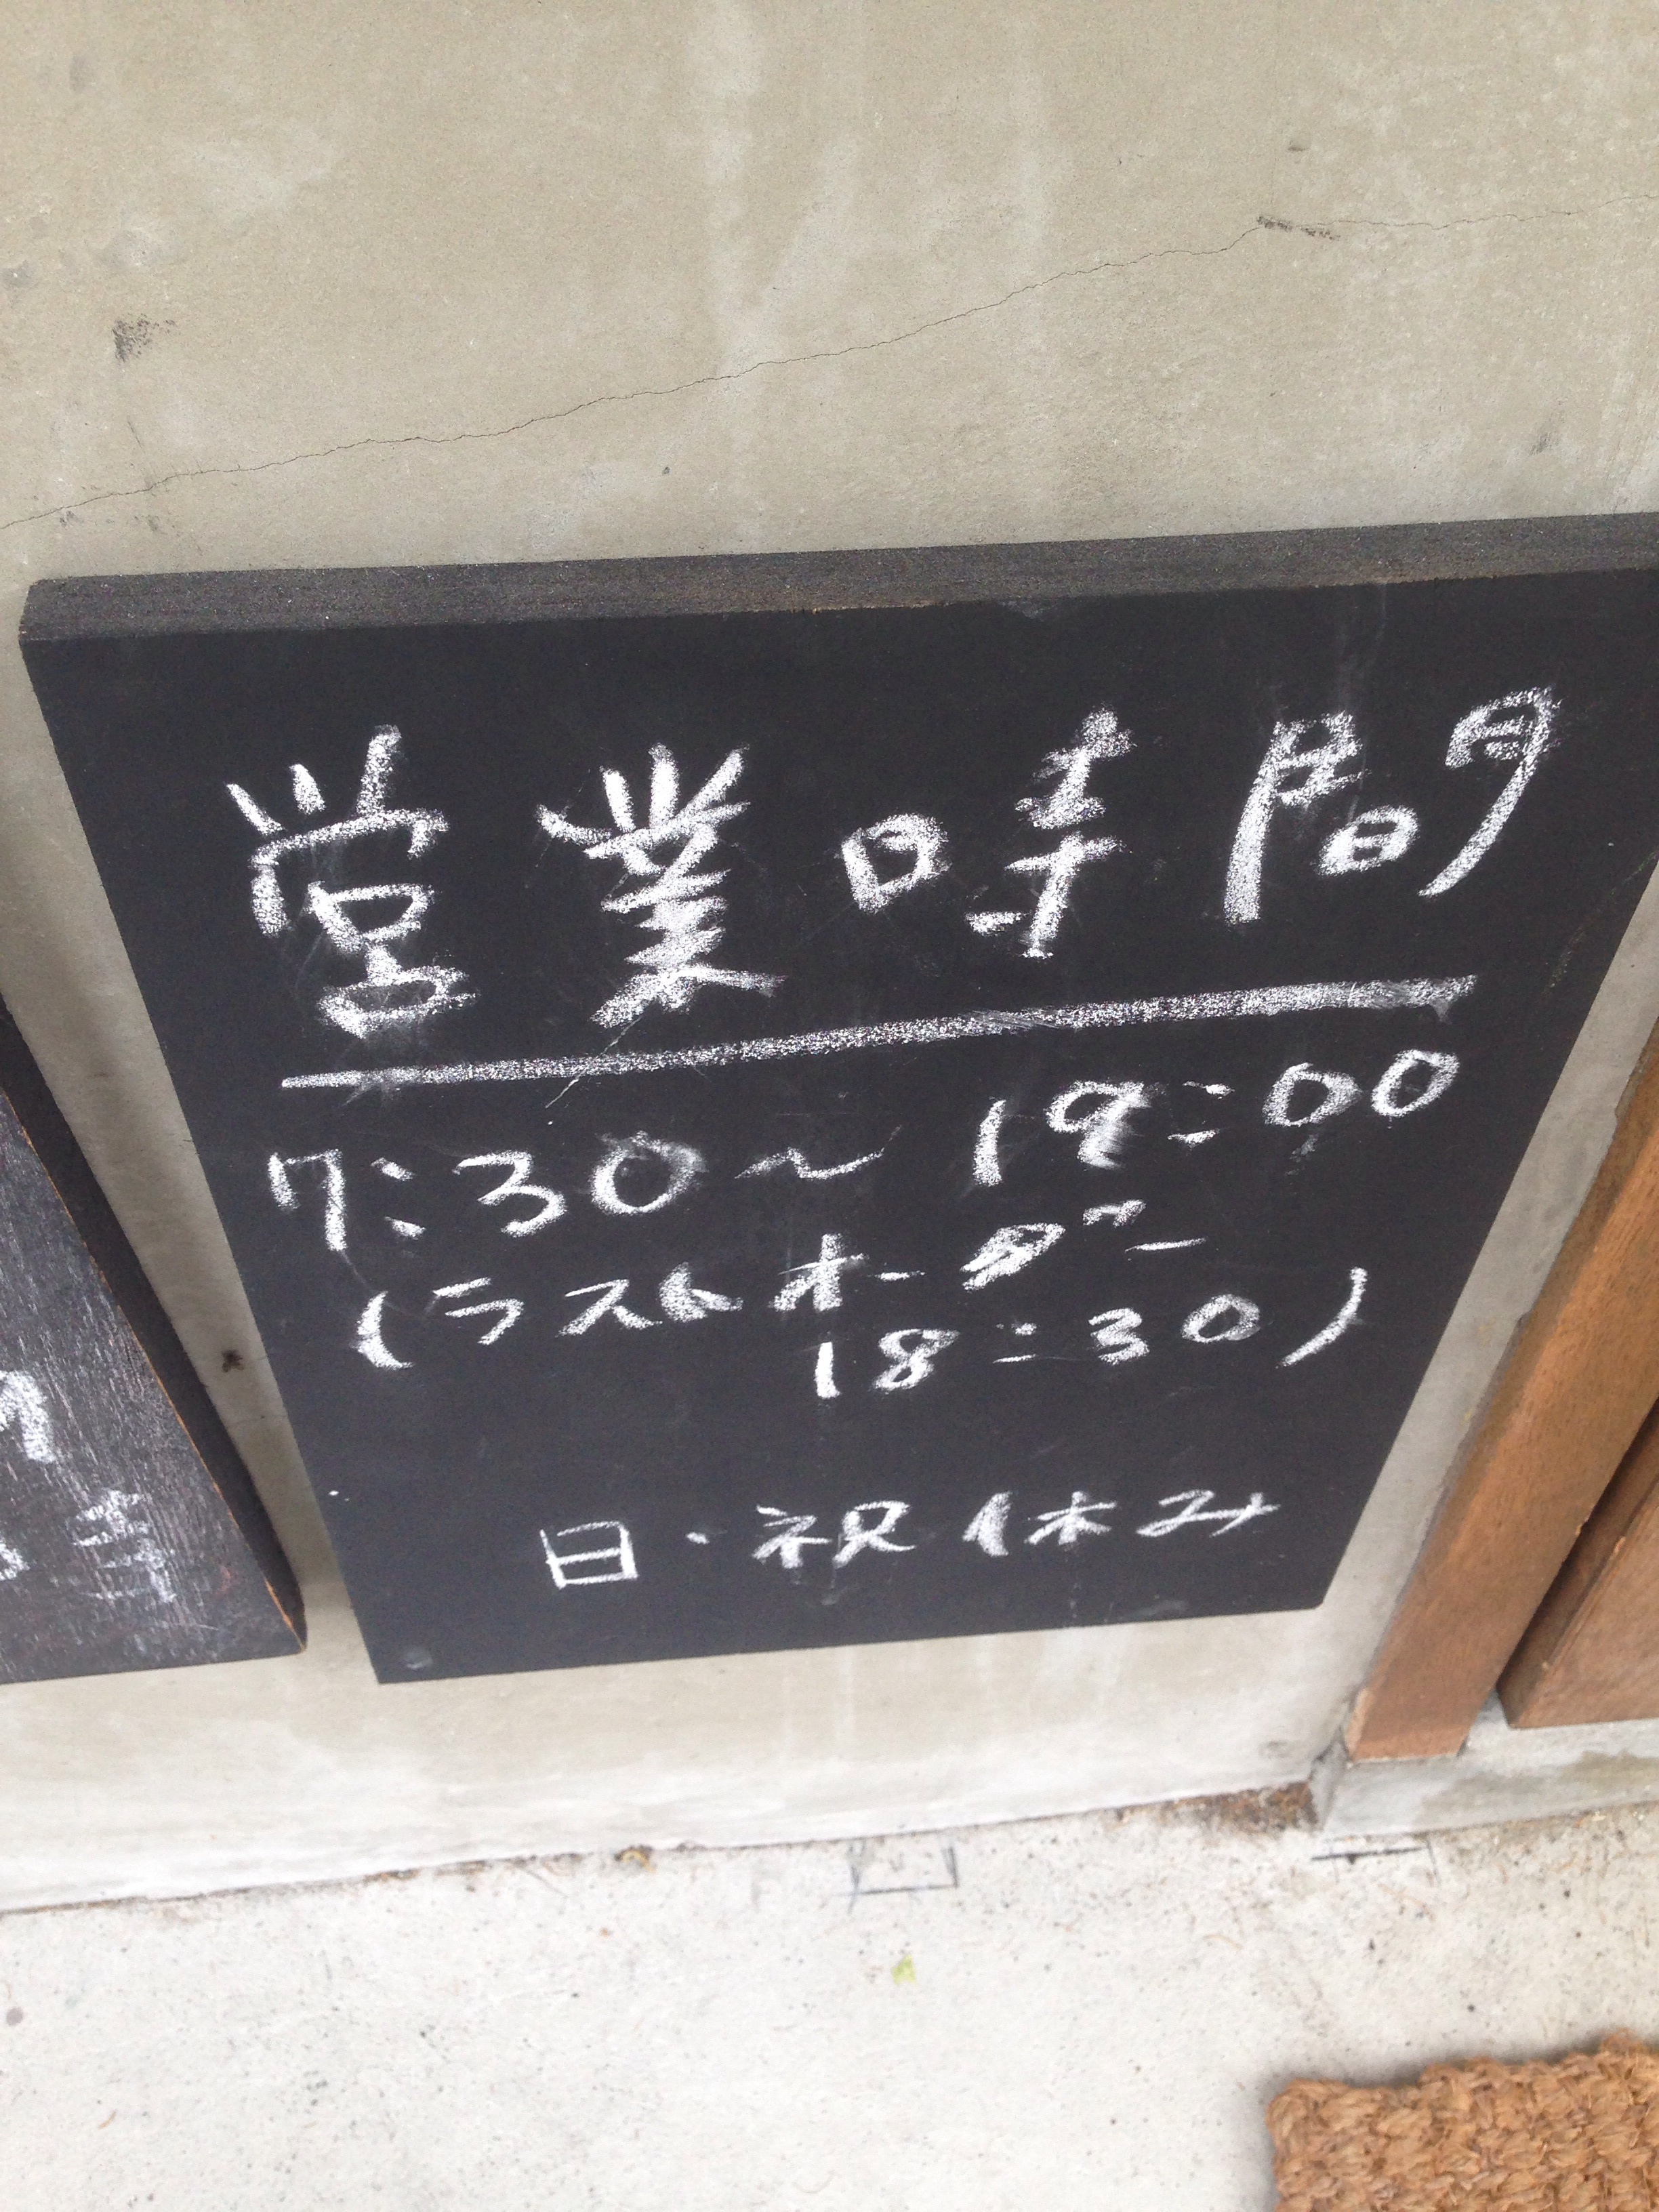 営業時間
7:30～19:00
(ラストオーダー
18:30)
日・祝休み